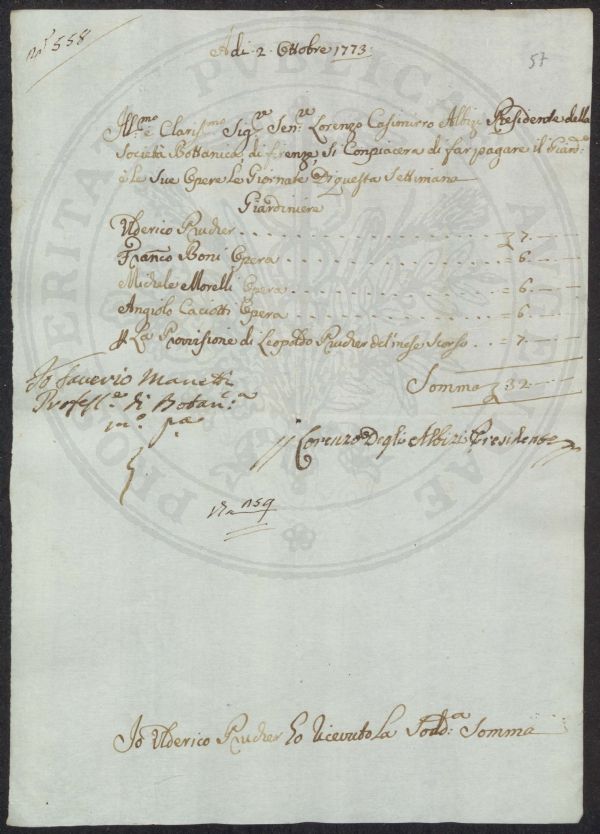 N.º 558
Adi 2 Ottobre 1773
57
Ill.mo e Claris.mo Sig.re Sen.re Lorenzo Casimirro Albizi Presidente della
Società Bottanica di firenze, Si Conpiacerà di far pagare il Giard.e
è le Sue Opere le Giornate Di questa Settimana
Giardiniere
Ulderico Prucher 7.
Franco Boni Opera = 6.
Michele Morelli Opera = 6.
Angiolo Caciotti Opera = 6.
P. La Provisione di Leopoldo Prucher del mese Scorso = 7.
Somma 32
Io Saverio Manetti
Profess.e di Botan.ca
m.o p.a
Lorenzo Degli Albizi Presidente
159
Io Ulderico Prucher ho Ricevuto La Sodd.a Somma
PROSPERITATI PUBLICAE AUGENDAE